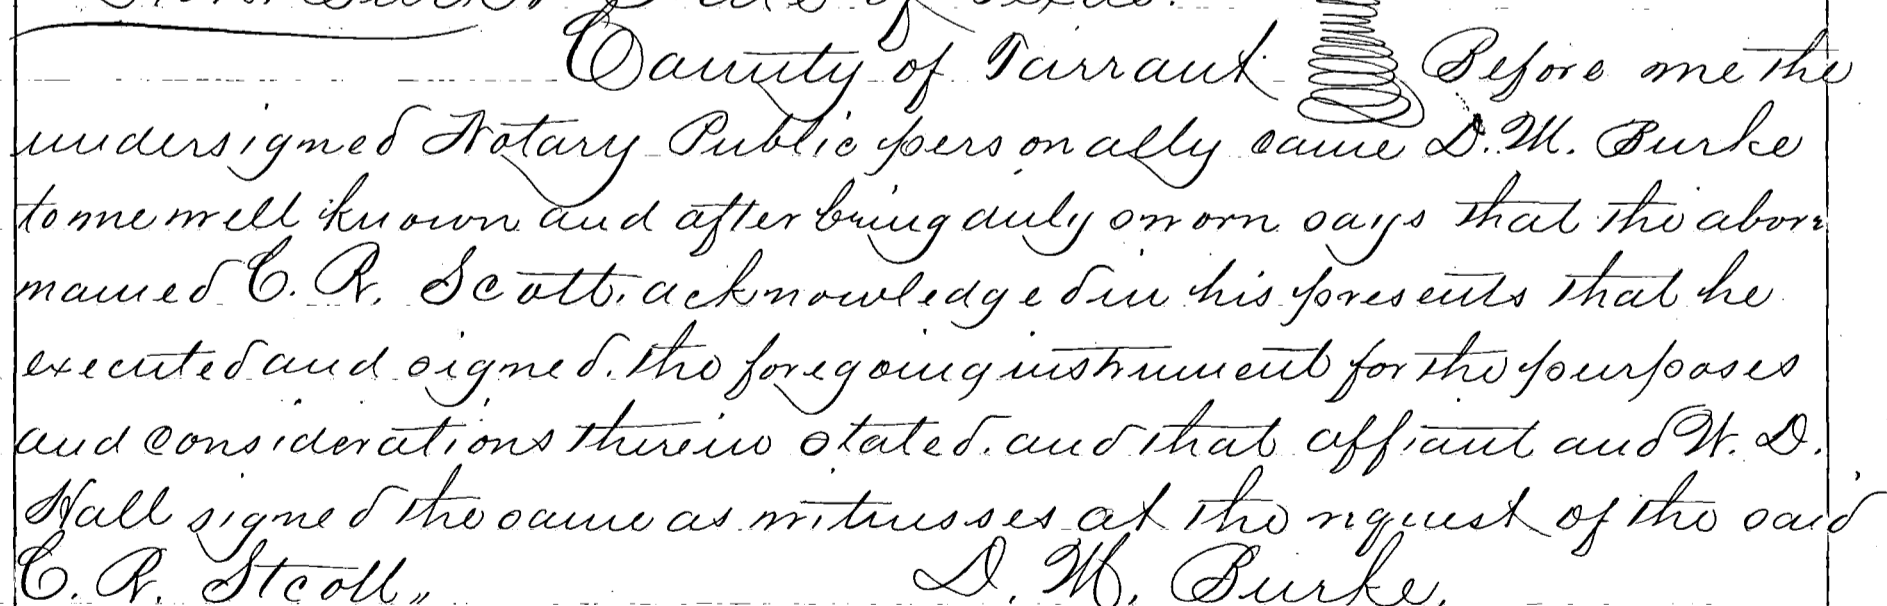 State of Texas.
County of Tarrant Before me the
undersigned Notary Public personally came D. M. Burke
to me well known and after being duly sworn says that the above
named C. R. Scott, acknowledged in his presents that he
executed and signed. the foregoing instrument for the purposes
and considerations therein stated. and that affiant and W. D.
Hall signed the same as witnesses at the request of the said
C. R. Stcott,, D. M. Burke.